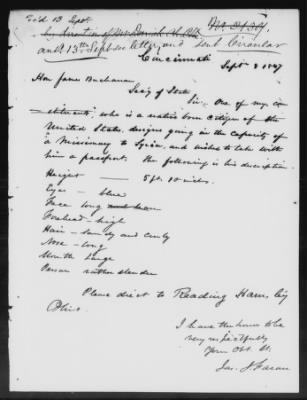 Rec'd 13 Sept
and 13th Sept see letter, and sent Circular
Cincinnati Sept 8 1847
Hon Jame Buchanan
Sec'y of State
Sir. One of my con
stituents, who is a native born Citizen of the
United States, designs going in the Capacity of
a Missionary to Syria, and wishes to take with
him a passport. The following is his description
Height 5 ft. 10 inches.
Eyes - blue
Face long
Forehead - high
Hair - sandy and curly
Nose - long
Mouth Large
Person rather slender
Please direct to Reading Ham. Co
Ohio.
I have the honor to be
very respectfully
Your Obt. St.
Jas. J. Faran